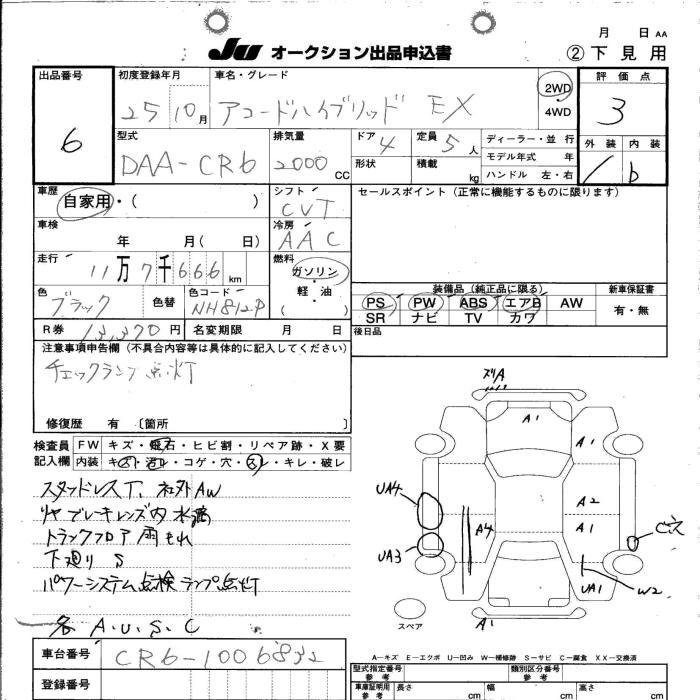 月 日 AA
JU オークション出品申込書
② 下見用
出品番号 6
初度登録年月 25 10月
車名・グレード アコードハイブリッド EX
2WD
4WD
評価点 3
外装 内装
/ b
型式 DAA-CR6
排気量 2000 CC
ドア 4
定員 5人
形状
積載 kg
ディーラー・並行
モデル年式 年
ハンドル 左・右
車歴 自家用・( )
シフト CVT
セールスポイント (正常に機能するものに限ります)
車検 年 月( 日)
冷房 AAC
走行 11万7千666km
燃料 ガソリン・軽油・( )
色 ブラック
色替
色コード NH812P
装備品 (純正品に限る)
新車保証書
PS PW ABS エアB AW
SR ナビ TV カワ
有・無
R券 13,370円
名変期限 月 日
後日品
注意事項申告欄 (不具合内容等は具体的に記入してください)
チェックランプ点灯
修復歴 有 〔箇所 〕
検査員記入欄
FW キズ・飛石・ヒビ割・リペア跡・X要
内装 キズ・汚レ・コゲ・穴・スレ・キレ・破レ
スタッドレスT. 社外AW
リヤブレーキレンズ内水滴
トランクフロア雨もれ
下廻りS
パワーシステム点検ランプ点灯
各A.U.S.C
ズリA
A1
A1
UA4
A2
A4
A1
UA3
UA1
W2
A1
スペア
A-キズ E-エクボ U-凹み W-補修跡 S-サビ C-腐食 XX-交換済
車台番号 CR6-1006832
登録番号
型式指定番号 参考
類別区分番号 参考
車庫証明用 参考
長さ cm
幅 cm
高さ cm